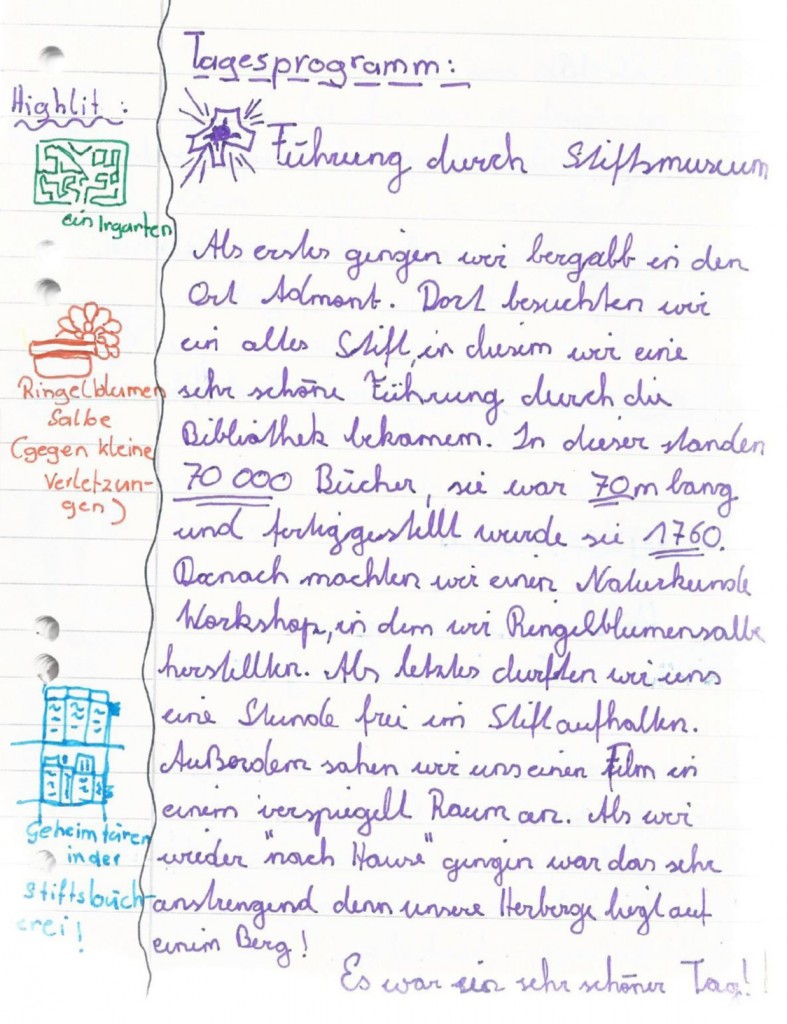 Tagesprogramm:
Highlit:
Führung durch Stiftsmuseum
ein Irgarten
Als erstes gingen wir bergabb in den
Ort Admont. Dort besuchten wir
ein altes Stift, in diesem wir eine
sehr schöne Führung durch die
Bibliothek bekamem. In dieser standen
70 000 Bücher, sie war 70m lang
und fertiggestellt wurde sie 1760.
Danach machten wir einen Naturkunde
Workshop, in dem wir Ringelblumensalbe
herstellten. Als letztes durften wir uns
eine Stunde frei im Stift aufhalten.
Außerdem sahen wir uns einen Film in
einem verspiegelt Raum an. Als wir
wieder "nach Hause" gingen war das sehr
anstrengend denn unsere Herberge liegt auf
einem Berg!
Es war ein sehr schöner Tag!!
Ringelblumen
Salbe
(gegen kleine
Verletzun-
gen)
Geheimtüren
in der
Stiftsbüch-
erei!